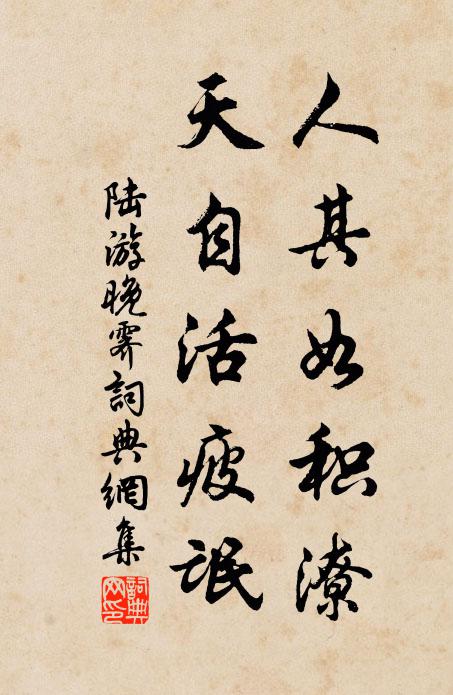 人其如积潦
天自活疲氓
陆游晚霁詞典網集
詞典网印